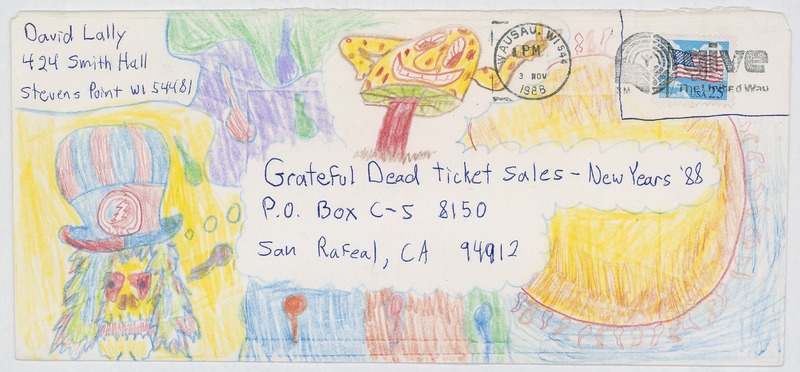 David Lally
424 Smith Hall
Stevens Point WI 54481
WAUSAU, WI 544
PM
3 NOV
1988
USA 25
Give
The United Way
Grateful Dead ticket sales - New Years '88
P.O. Box C-S 8150
San Rafeal, CA 94912